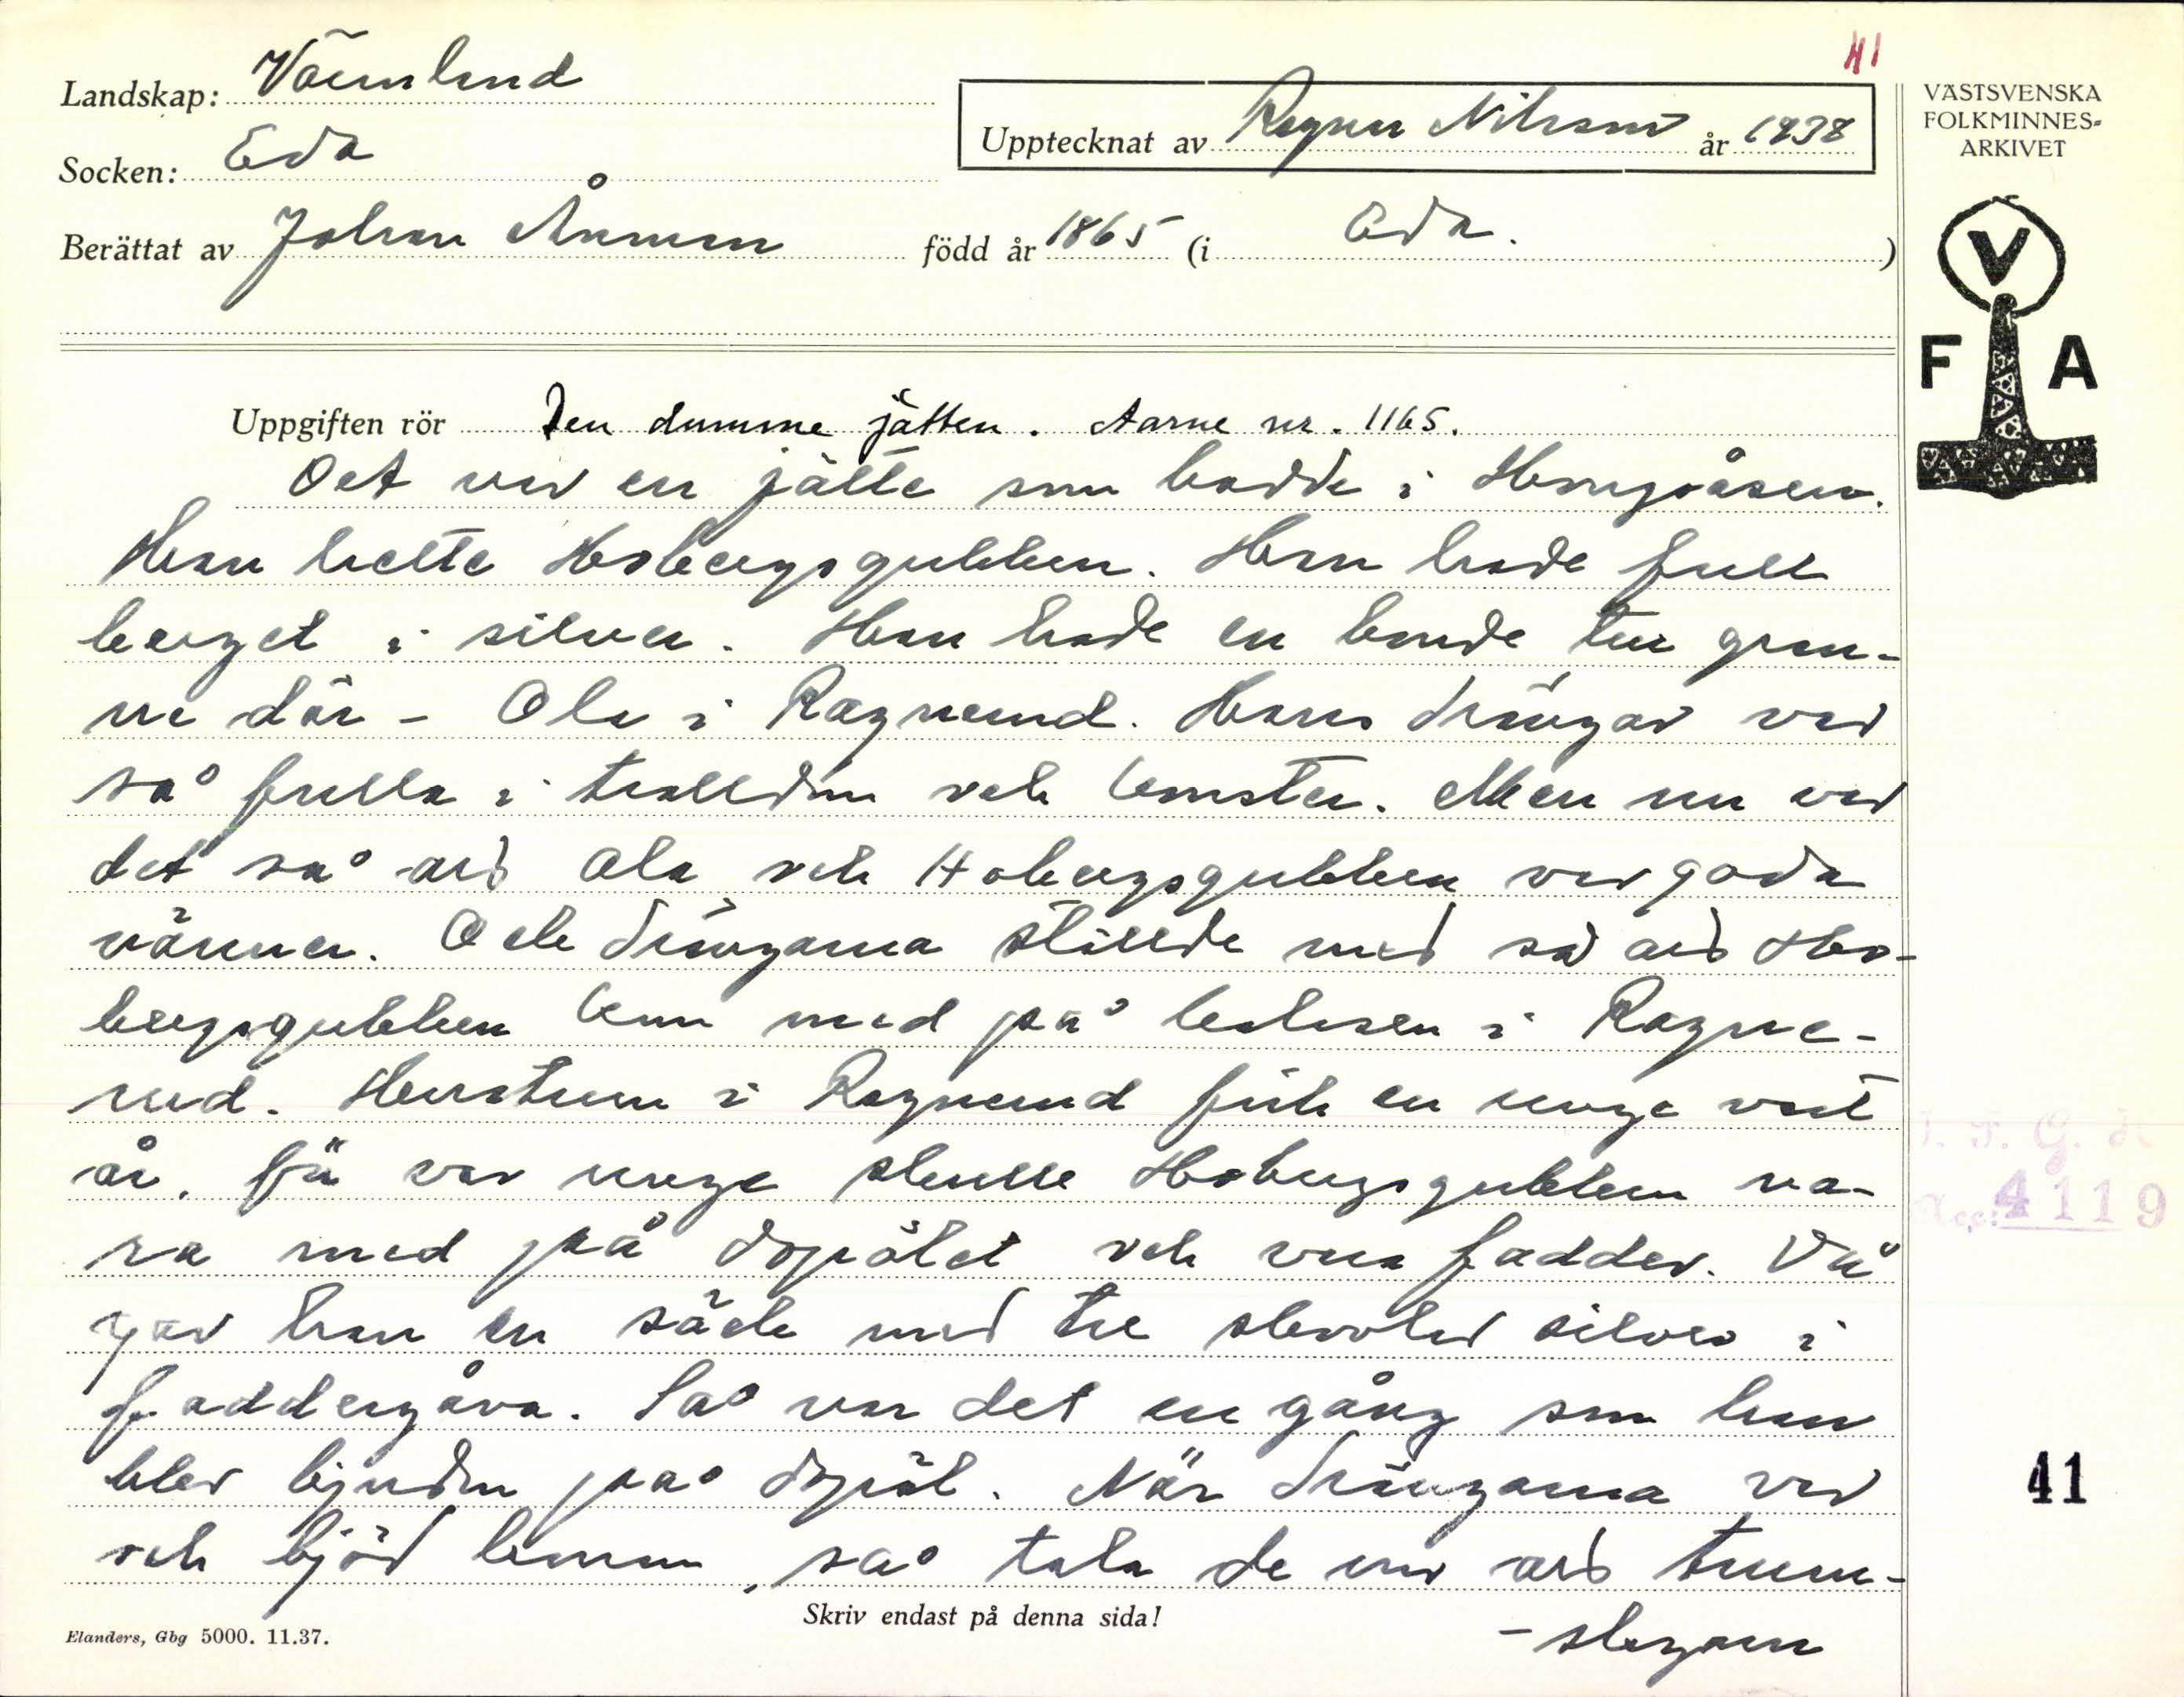 41
Landskap: Värmland
Socken: Eda
Berättat av Johan Åman född år 1865 (i Eda. )
Upptecknat av Ragnar Nilsson år 1938
VÄSTSVENSKA
FOLKMINNES-
ARKIVET
V
F A
Uppgiften rör Den dumme jätten. Aarne nr. 1165.
Det var en jätte som bodde i
Han hette Hobergsgubben. Han hade full
berget i silver. Han hade en bonde till gran-
ne där - Ola i Ragnerud. Hans drängar var
så fulla i trolldom och konster. Men nu var
det så att Ola och Hobergsgubben var goda
vänner. Och drängarna ställde med så att Ho-
bergsgubben kom med på kalasen i Ragne-
rud. Hustrun i Ragnerud fick en unge vart
år. För var unge skulle Hobergsgubben va-
ra med på dopölet och vara fadder. Då
gav han en säck med tre skovlar silver i
faddergåva. Så var det en gång som han
blev bjuden på dopöl. När drängarna var
och bjöd honom, så tala de om att trum-
- slagarn
J. F. G. H
Acc: 4119
41
Skriv endast på denna sida!
Elanders, Gbg 5000. 11.37.